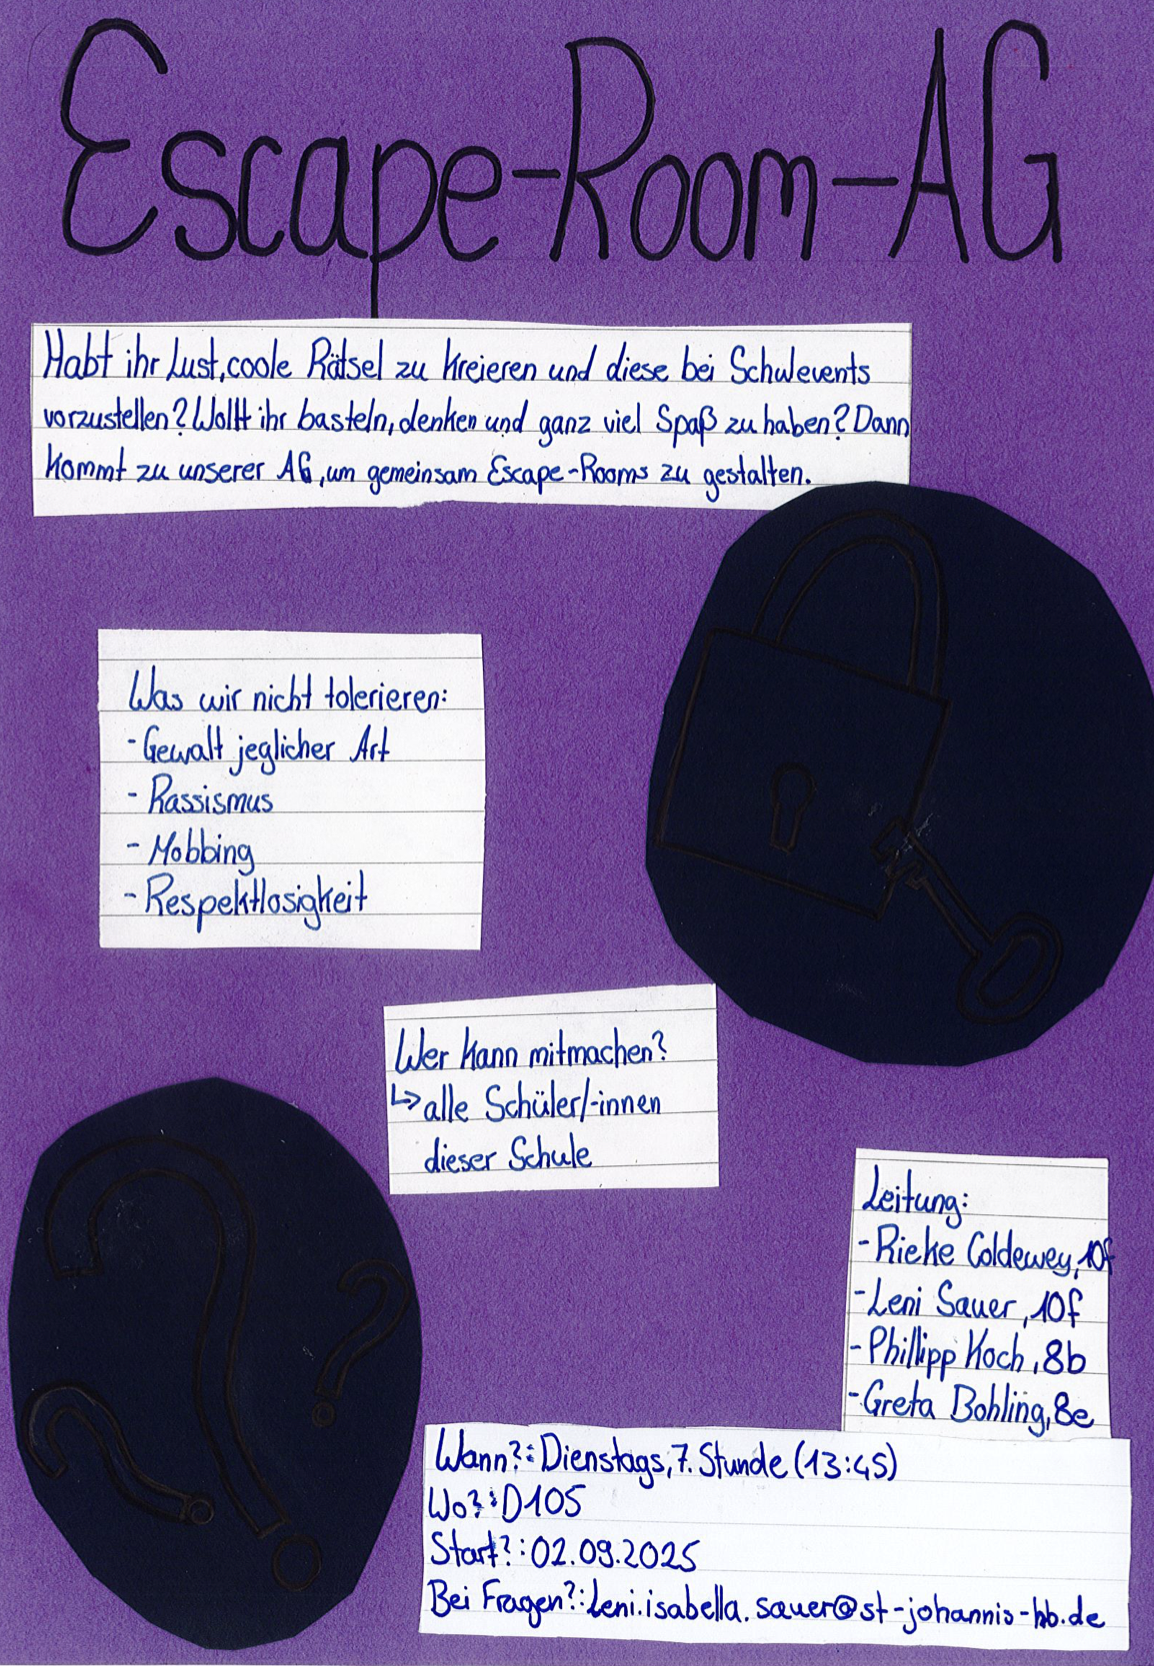 Escape-Room-AG
Habt ihr Lust, coole Rätsel zu kreieren und diese bei Schulevents
vorzustellen? Wollt ihr basteln, denken und ganz viel Spaß zu haben? Dann
kommt zu unserer AG, um gemeinsam Escape-Rooms zu gestalten.
Was wir nicht tolerieren:
- Gewalt jeglicher Art
- Rassismus
- Mobbing
- Respektlosigkeit
Wer kann mitmachen?
↳ alle Schüler/-innen
dieser Schule
Leitung:
- Rieke Coldewey, 10f
- Leni Sauer, 10f
- Phillipp Koch, 8b
- Greta Bohling, 8e
Wann?: Dienstags, 7. Stunde (13:45)
Wo?: D105
Start?: 02.09.2025
Bei Fragen?: leni.isabella.sauer@st-johannis-hb.de